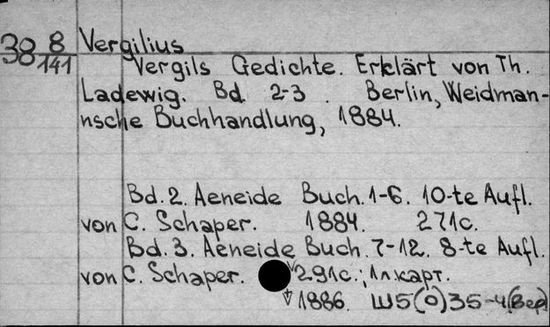 38 8/141 Vergilius
Vergils Gedichte. Erklärt von Th.
Ladewig. Bd 2-3. Berlin, Weidman-
nsche Buchhandlung, 1884.
Bd. 2. Aeneide Buch. 1-6. 10-te Aufl.
von C. Schaper. 1884. 271c.
Bd. 3. Aeneide Buch. 7-12. 8-te Aufl.
von C. Schaper. 291c.; 1л.карт.
1886. Ш5(0)35-4(Вер)